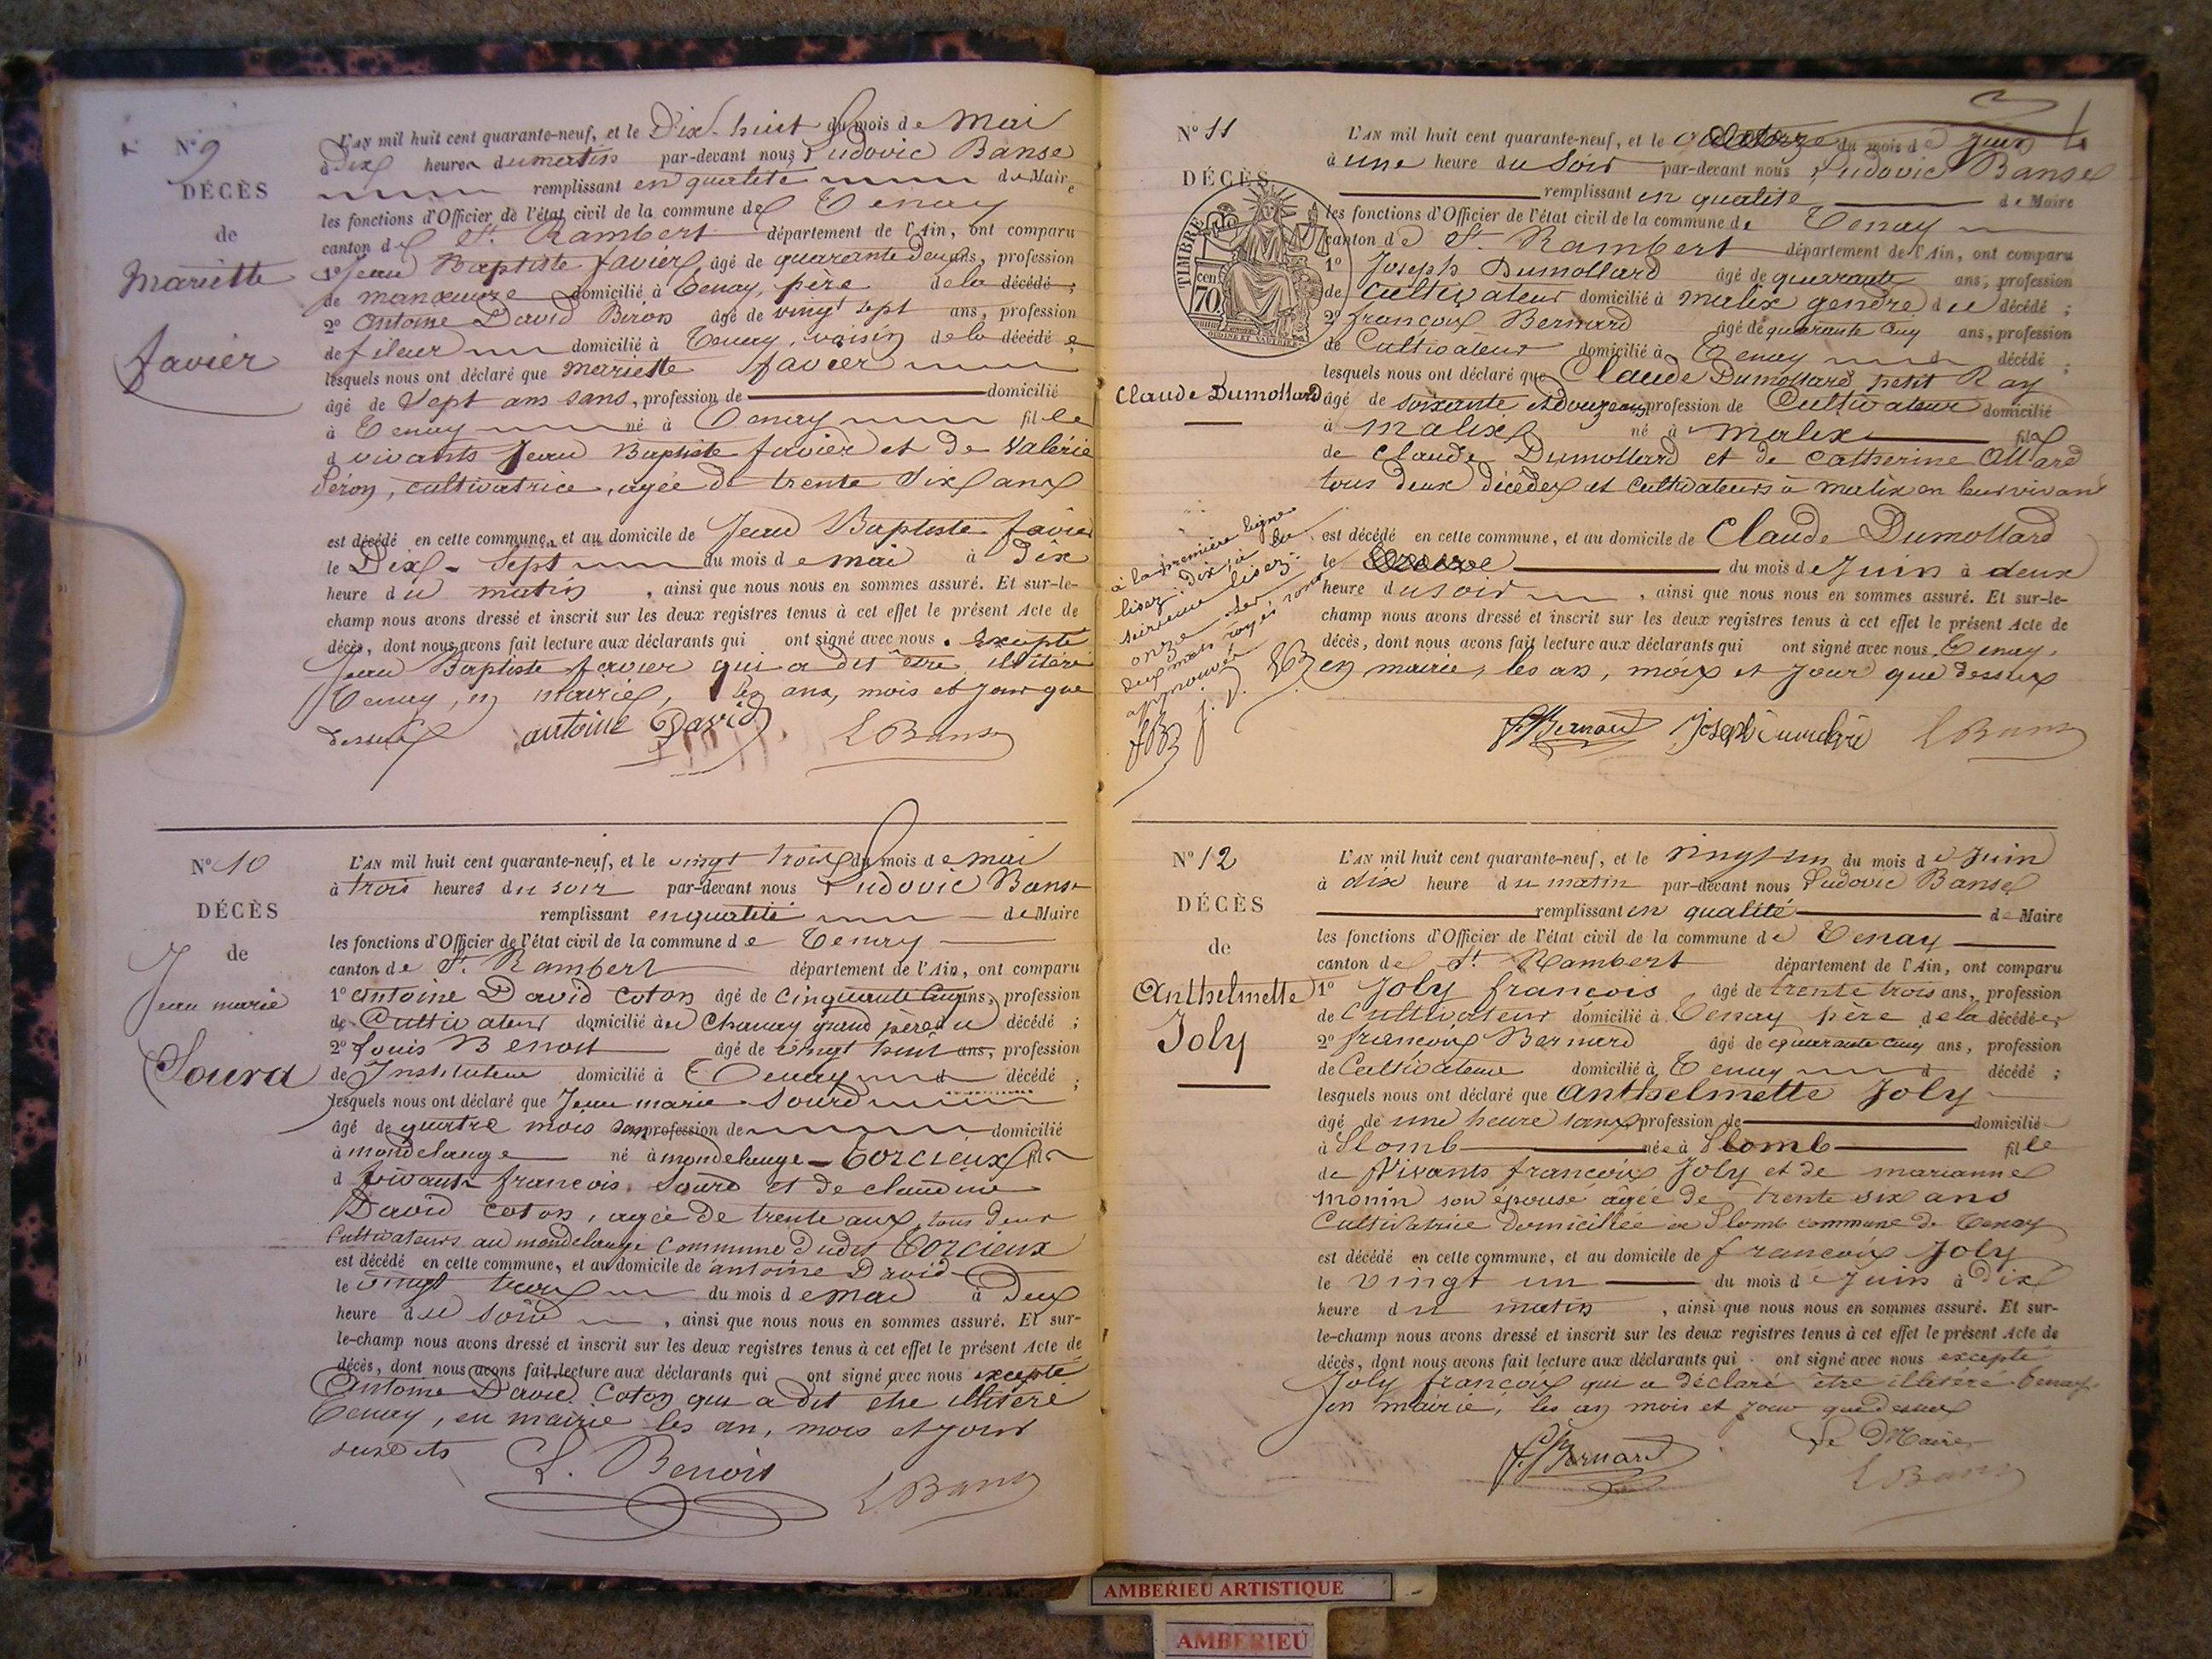 N° 9
DÉCÈS
de
Mariette
favier
L'AN mil huit cent quarante-neuf, et le Dix-huit du mois de Mai
à Dix heures du matin par-devant nous Ludovic Banse
remplissant en qualité de Maire
les fonctions d'Officier de l'état civil de la commune de Tenay
canton de St. Rambert département de l'Ain, ont comparu
1° Jean Baptiste favier, âgé de quarante Deux ans, profession
de manœuvre domicilié à Tenay, père de la décédé ;
2° Antoine David Beron âgé de vingt sept ans, profession
de fileur domicilié à Tenay, voisin de la décédé e
lesquels nous ont déclaré que mariette favier
âgé de Sept ans sans, profession de domicilié
à Tenay né à Tenay fille
d vivants Jean Baptiste favier et de Valérie
Peron, cultivatrice, agée de trente Six ans
est décédé en cette commune, et au domicile de Jean Baptiste favier
le Dix-Sept du mois de mai à Dix
heure du matin, ainsi que nous nous en sommes assuré. Et sur-le-
champ nous avons dressé et inscrit sur les deux registres tenus à cet effet le présent Acte de
décès, dont nous avons fait lecture aux déclarants qui ont signé avec nous. Excepté
Jean Baptiste favier qui a dit être illitéré
Tenay, en mairie, les ans, mois et jour que
dessus
antoine David LBanse
N° 10
DÉCÈS
de
Jean marie
Sourd
L'AN mil huit cent quarante-neuf, et le vingt trois du mois de mai
à trois heures du soir par-devant nous Ludovic Banse
remplissant en qualité de Maire
les fonctions d'Officier de l'état civil de la commune de Tenay
canton de St. Rambert département de l'Ain, ont comparu
1° antoine David Coton âgé de Cinquante Cinq ans, profession
de Cultivateur domicilié à Chanay grand père du décédé ;
2° Louis Benoit âgé de vingt huit ans, profession
de Instituteur domicilié à Tenay d décédé ;
lesquels nous ont déclaré que Jean marie Sourd
âgé de quatre mois sans profession de domicilié
à mondelange né à mondelange - Torcieux fils
d vivants francois Sourd et de claudine
David coton, agée de trente ans, tous deux
Cultivateurs au mondelange commune dudit Torcieux
est décédé en cette commune, et au domicile de antoine David
le vingt trois du mois de mai à Deux
heure du soir, ainsi que nous nous en sommes assuré. Et sur-
le-champ nous avons dressé et inscrit sur les deux registres tenus à cet effet le présent Acte de
décès, dont nous avons fait lecture aux déclarants qui ont signé avec nous excepté
Antoine David Coton qui a dit etre illitéré
Tenay, en mairie les an, mois et jour
susdits
L. Benoit LBanse
N° 11
DÉCÈS
TIMBRE
cen
70.
Claude Dumollard
L'AN mil huit cent quarante-neuf, et le quatorze du mois de Juin
à une heure du Soir par-devant nous Ludovic Banse
remplissant en qualité de Maire
les fonctions d'Officier de l'état civil de la commune de Tenay
canton de St. Rambert département de l'Ain, ont comparu
1° Joseph Dumollard âgé de quarante ans, profession
de Cultivateur domicilié à malix gendre du décédé ;
2° francois Bernard âgé de quarante Cinq ans, profession
de Cultivateur domicilié à Tenay d décédé ;
lesquels nous ont déclaré que Claude Dumollard petit Ray
âgé de soixante et douze ans, profession de Cultivateur domicilié
à malix né à malix fils
de Claude Dumollard et de Catherine Allard
tous deux décédés et Cultivateurs à malix en leur vivant
est décédé en cette commune, et au domicile de Claude Dumollard
le du mois de Juin à deux
heure du soir, ainsi que nous nous en sommes assuré. Et sur-le-
champ nous avons dressé et inscrit sur les deux registres tenus à cet effet le présent Acte de
décès, dont nous avons fait lecture aux déclarants qui ont signé avec nous, Tenay,
en mairie, les an, mois et jour que dessus
à la première ligne
lisez Dix, à la
lisez:
onze. Les
deux mots rayés sont
approuvés
f.Bernard Joseph LBanse
N° 12
DÉCÈS
de
Anthelmette
Joly
L'AN mil huit cent quarante-neuf, et le vingt un du mois de Juin
à dix heure du matin par-devant nous Ludovic Banse
remplissant en qualité de Maire
les fonctions d'Officier de l'état civil de la commune de Tenay
canton de St. Rambert département de l'Ain, ont comparu
1° Joly françois, âgé de trente trois ans, profession
de Cultivateur domicilié à Tenay père de la décédée ;
2° françois Bernard âgé de quarante cinq ans, profession
de Cultivateur domicilié à Tenay d décédé ;
lesquels nous ont déclaré que Anthelmette Joly
âgé de une heure sans profession de domicilié
à Plomb née à Plomb fille
de Vivants françois Joly et de marianne
monin son épouse âgée de trente six ans
Cultivatrice domicillée à Plomb commune de Tenay
est décédé en cette commune, et au domicile de francois Joly
le vingt un du mois de Juin à Dix
heure du matin, ainsi que nous nous en sommes assuré. Et sur-
le-champ nous avons dressé et inscrit sur les deux registres tenus à cet effet le présent Acte de
décès, dont nous avons fait lecture aux déclarants qui ont signé avec nous excepté
Joly françois qui a déclaré être illitéré. Tenay
en mairie, les an mois et jour que dessus
Le Maire
f.Bernard LBanse
AMBERIEU ARTISTIQUE
AMBERIEU